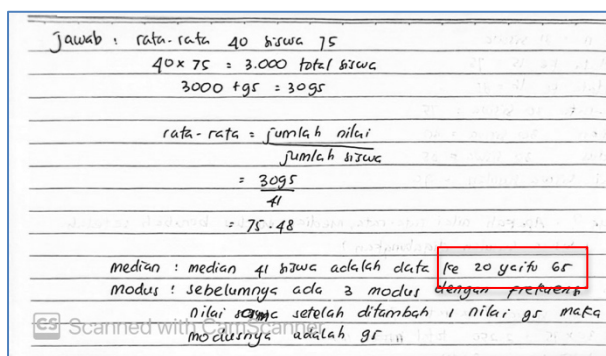 Jawab : rata-rata 40 siswa 75
40 x 75 = 3.000 total siswa
3000 + 95 = 3095
rata-rata = jumlah nilai
jumlah siswa
= 3095
41
= 75.48
median : median 41 siswa adalah data ke 20 yaitu 65
modus : sebelumnya ada 3 modus dengan frekuensi
nilai sama setelah ditambah 1 nilai 95 maka
modusnya adalah 95
CS Scanned with CamScanner